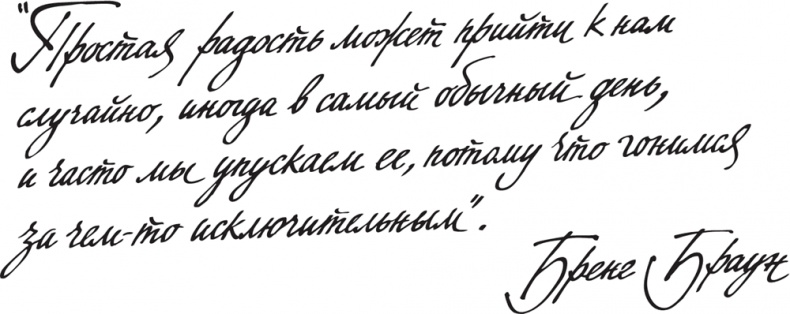 "Простая радость может прийти к нам
случайно, иногда в самый обычный день,
и часто мы упускаем ее, потому что гонимся
за чем-то исключительным".
Брене Браун